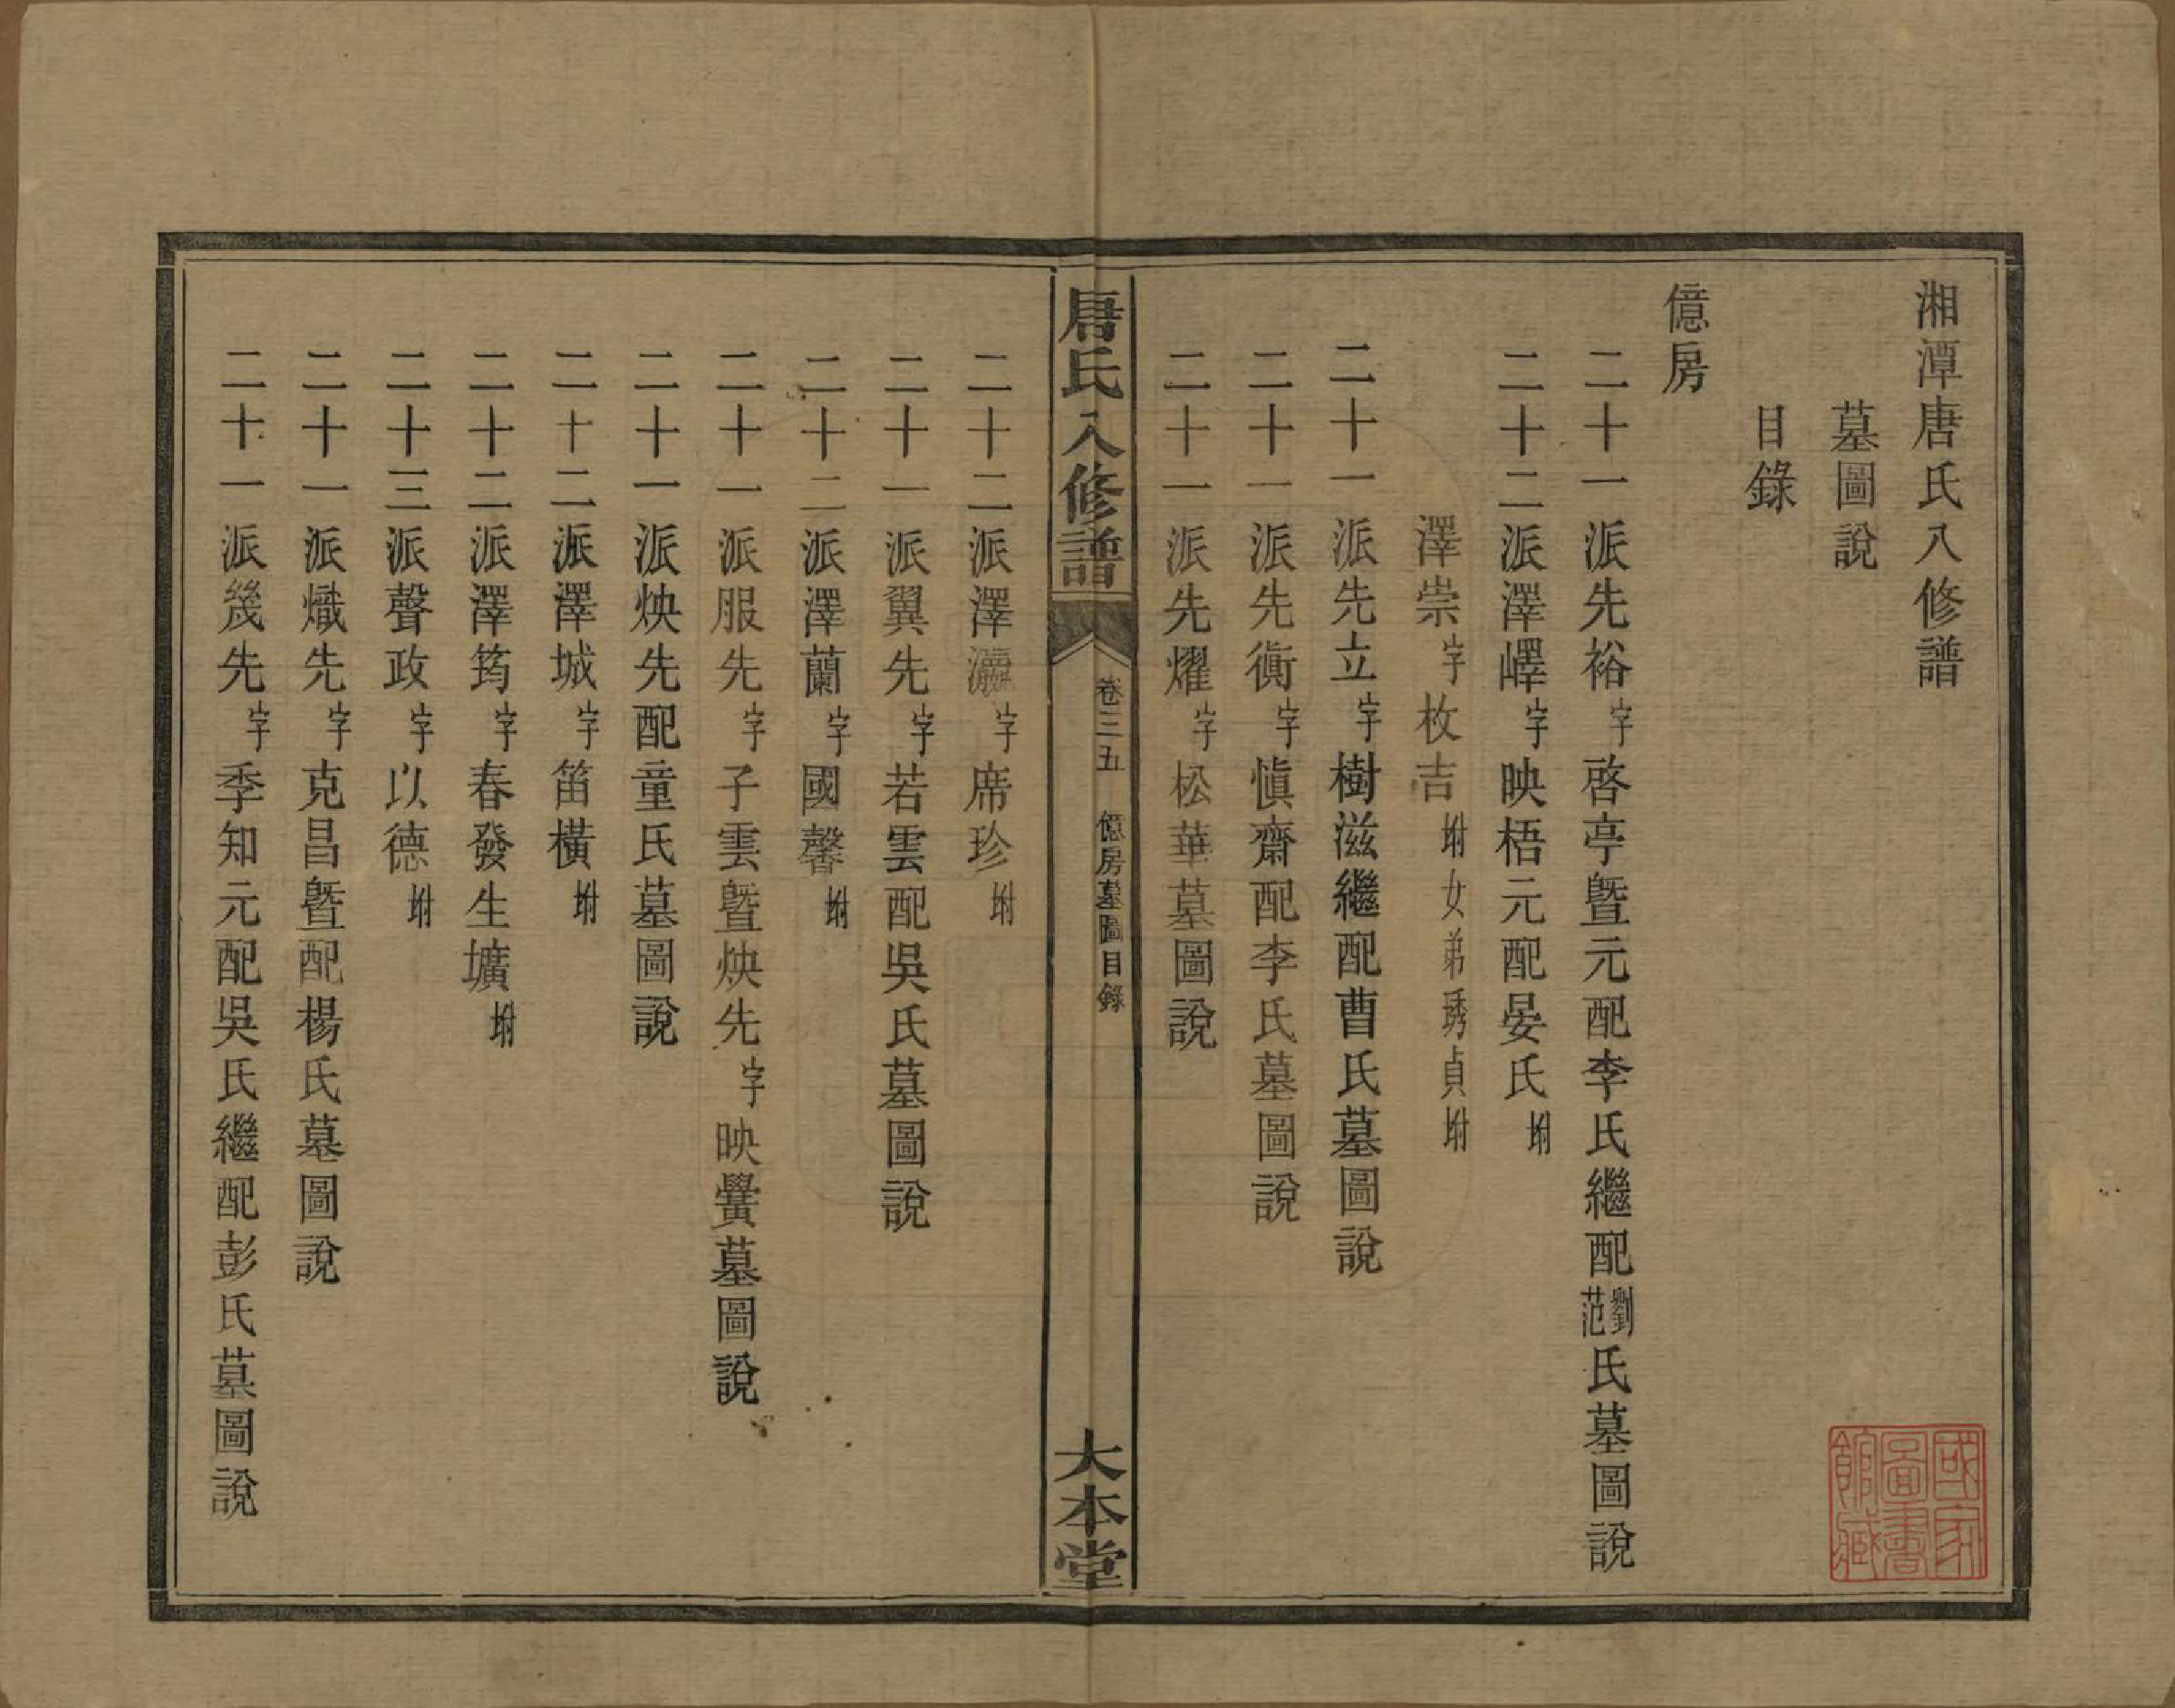 湘潭唐氏八修譜
墓圖說
目錄
億房
二十一派先裕字啓亭暨元配李氏繼配劉范氏墓圖說
二十二派澤嶧字映梧元配晏氏坿
澤崇字枚吉坿女弟琇貞坿
二十一派先立字樹滋繼配曹氏墓圖說
二十一派先衡字愼齋配李氏墓圖說
二十一派先燿字松華墓圖說
唐氏八修譜
卷三五
億房墓圖目錄
大本堂
二十二派澤灝字席珍坿
二十一派翼先字若雲配吳氏墓圖說
二十二派澤蘭字國馨坿
二十一派服先字子雲暨炴先字映黌墓圖說
二十一派炴先配童氏墓圖說
二十二派澤城字笛橫坿
二十二派澤筠字春發生壙坿
二十三派聲政字以德坿
二十一派熾先字克昌暨配楊氏墓圖說
二十一派幾先字季知元配吳氏繼配彭氏墓圖說
國家圖書館藏